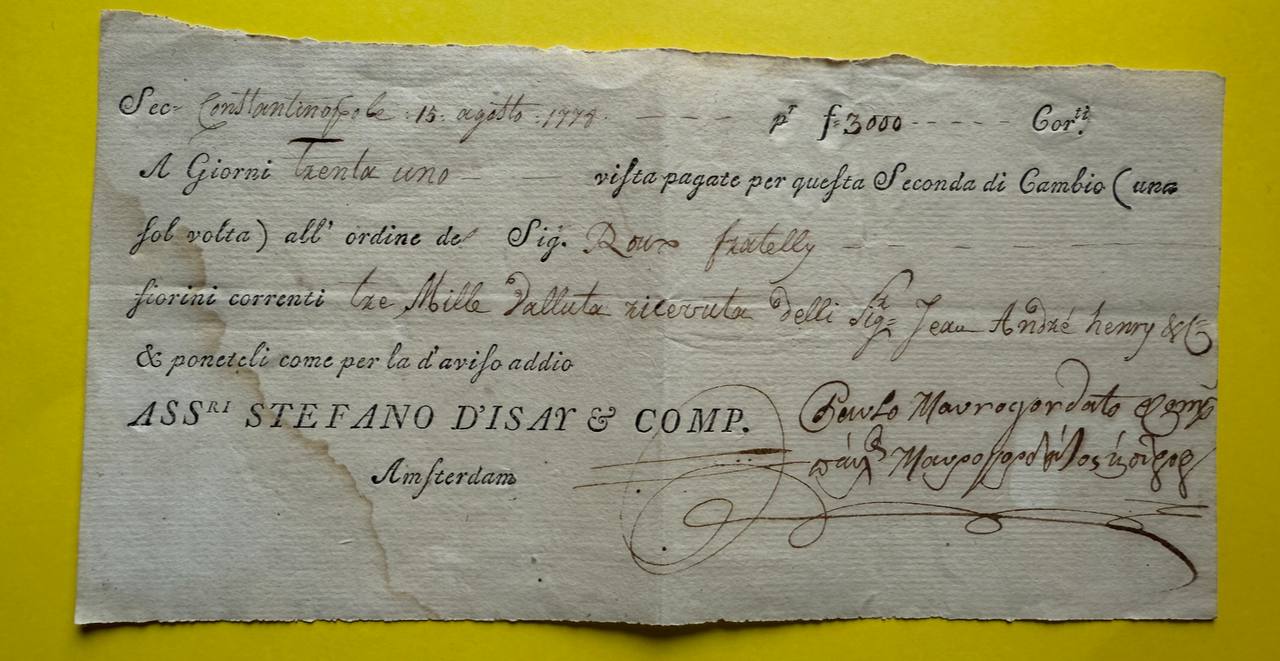 Sec= Constantinopole .15. agosto .1778. - - - - pr f=3000 - - - - - Corti.
A Giorni trenta uno — — viſta pagate per queſta Seconda di Cambio (una
ſol volta) all' ordine de Sigr. Roux fratelly — — — —
fiorini correnti tre Mille Valluta riceruta delli Sigri Jean André henry & C
& poneteli come per la d'aviſo addio
ASSRI STEFANO D'ISAY & COMP. Paulo Maurogordato & Comp
Amſterdam Μαυρογορδάτος